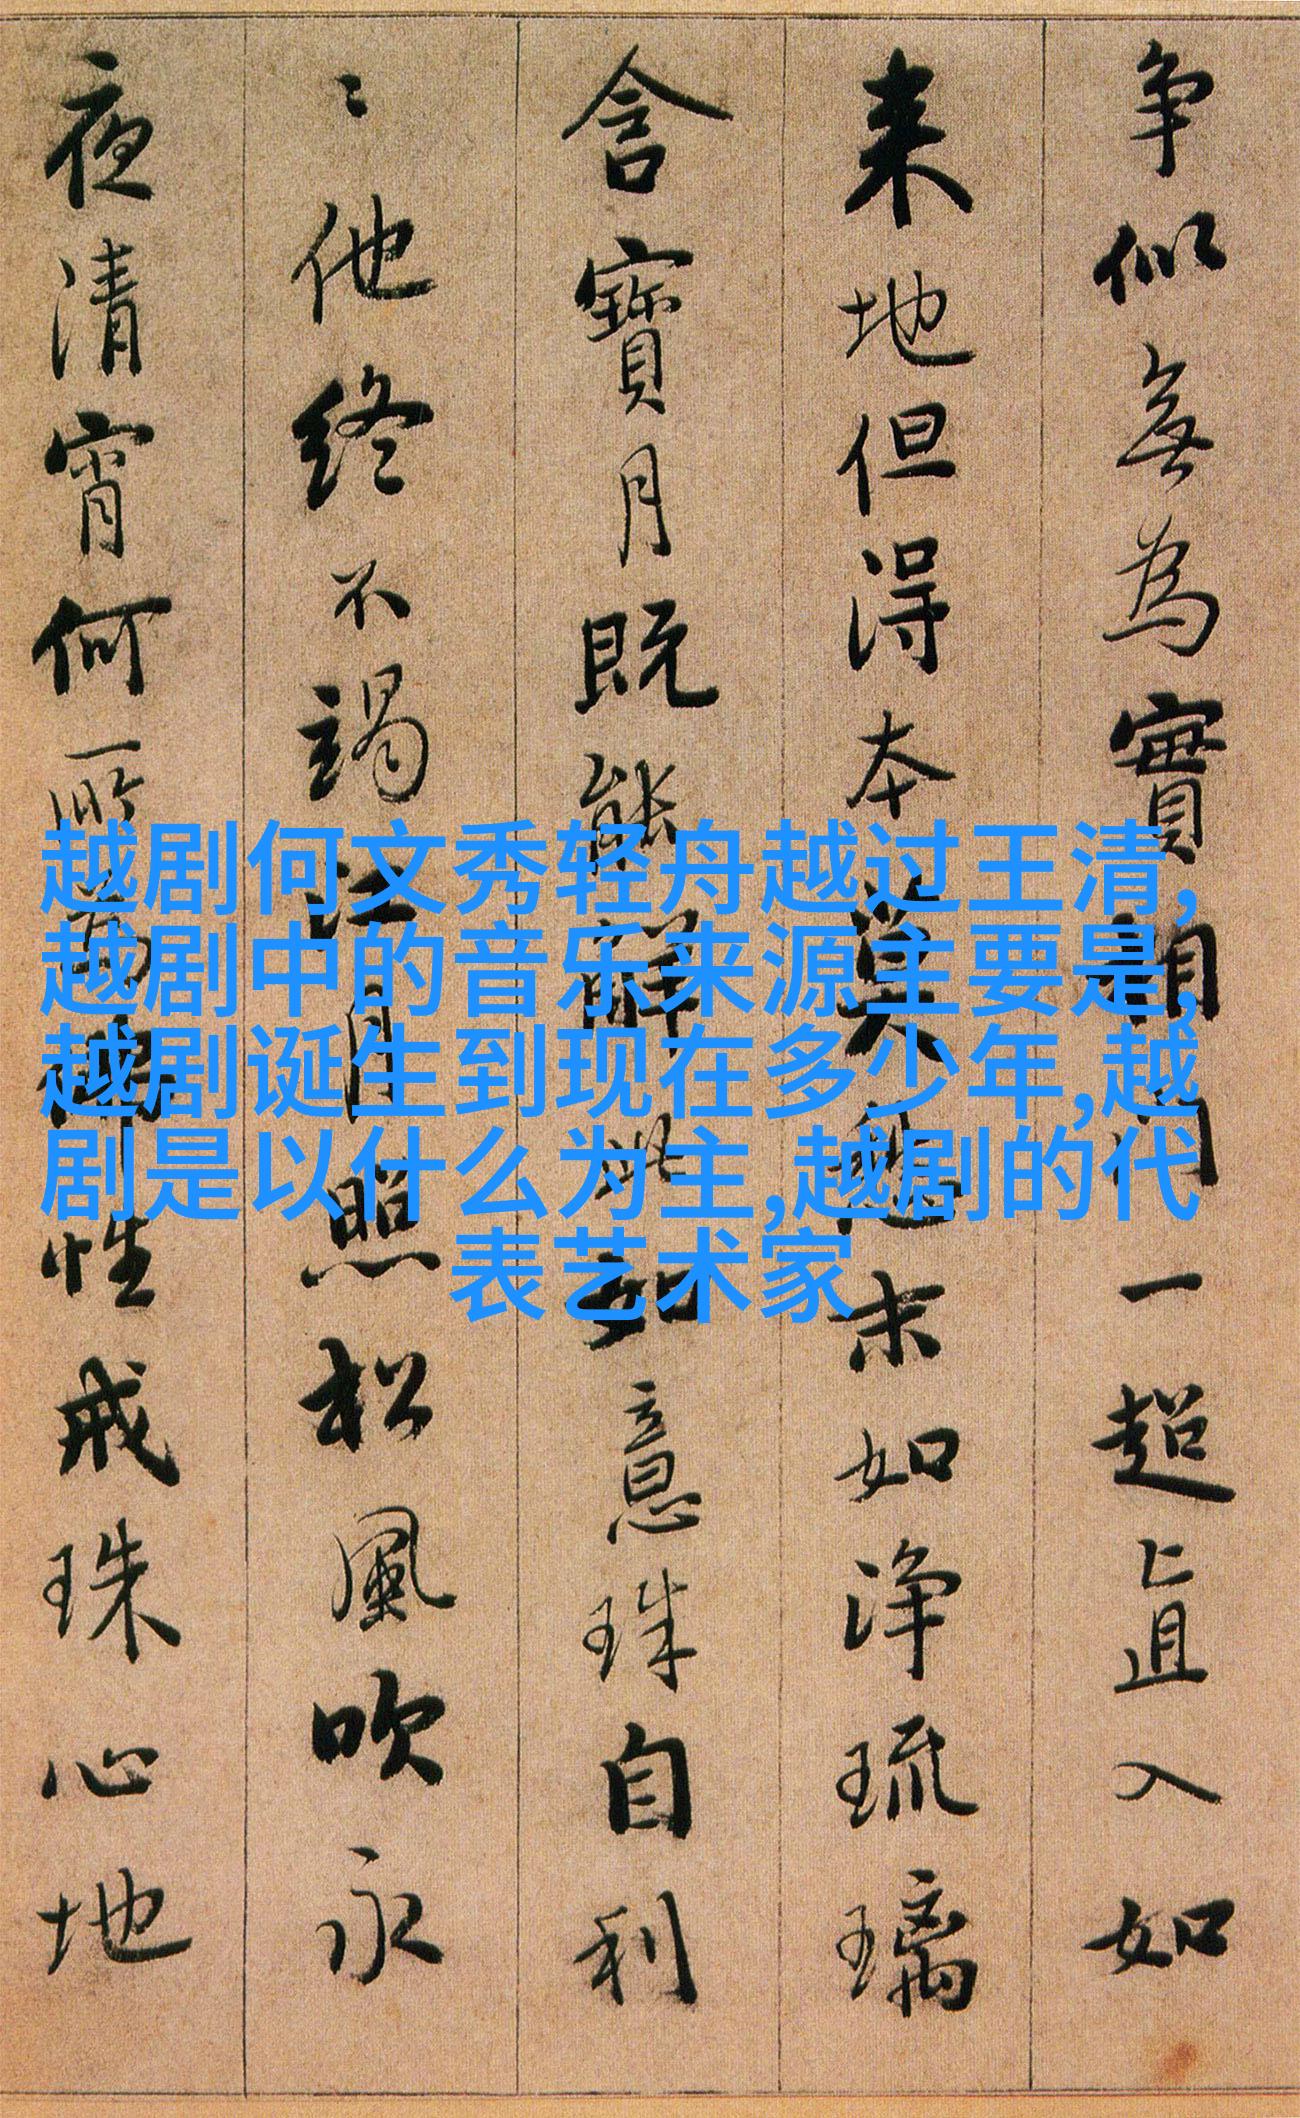 争似無為實相門一超直入如
来地但得本莫愁末如淨琉璃
含寶月既能解此如意珠自利
〻他終不竭江月照松風吹永
夜清宵何所為佛性戒珠心地
越剧何文秀轻舟越过王清,
越剧中的音乐来源主要是,
越剧诞生到现在多少年,越
剧是以什么为主,越剧的代
表艺术家